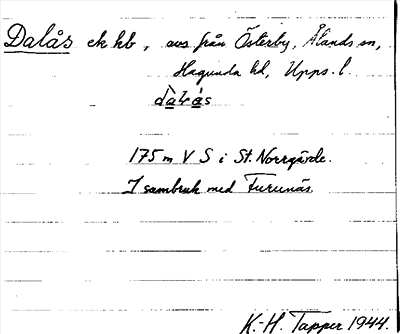 Dalås ek hb, avs. från Österby, Ålands sn,
Hagunda hd, Upps. l.
dàlå̀s
175 m V S i St. Norrgärde.
I sambruk med Furunäs.
K.-H. Tapper 1944.